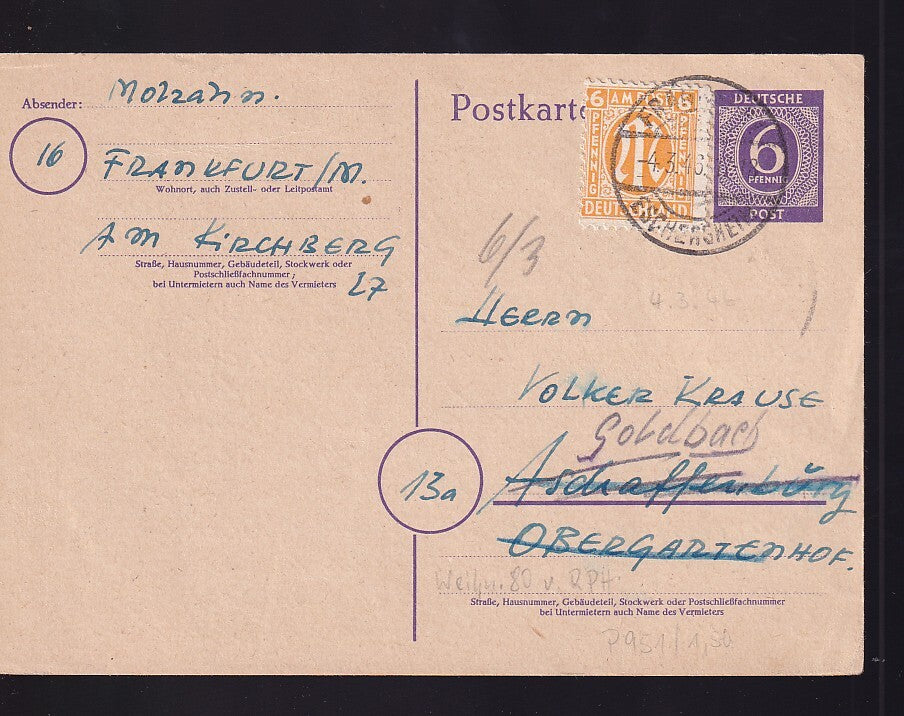 Absender: Molzahn.
16
FRANKFURT/M.
Wohnort, auch Zustell- oder Leitpostamt
AM KIRCHBERG
Straße, Hausnummer, Gebäudeteil, Stockwerk oder
Postschließfachnummer;
bei Untermietern auch Name des Vermieters
27
Postkarte
6 AM POST 6
PFENNIG
PFENNIG
DEUTSCHLAND
DEUTSCHE
6
PFENNIG
POST
-4.3.46
6/3
4.3.46
HERRN
VOLKER KRAUSE
Goldbach
13a
Aschaffenburg
OBERGARTENHOF.
Weihn. 80 v. RPH
Straße, Hausnummer, Gebäudeteil, Stockwerk oder Postschließfachnummer
bei Untermietern auch Name des Vermieters
P951/1,50